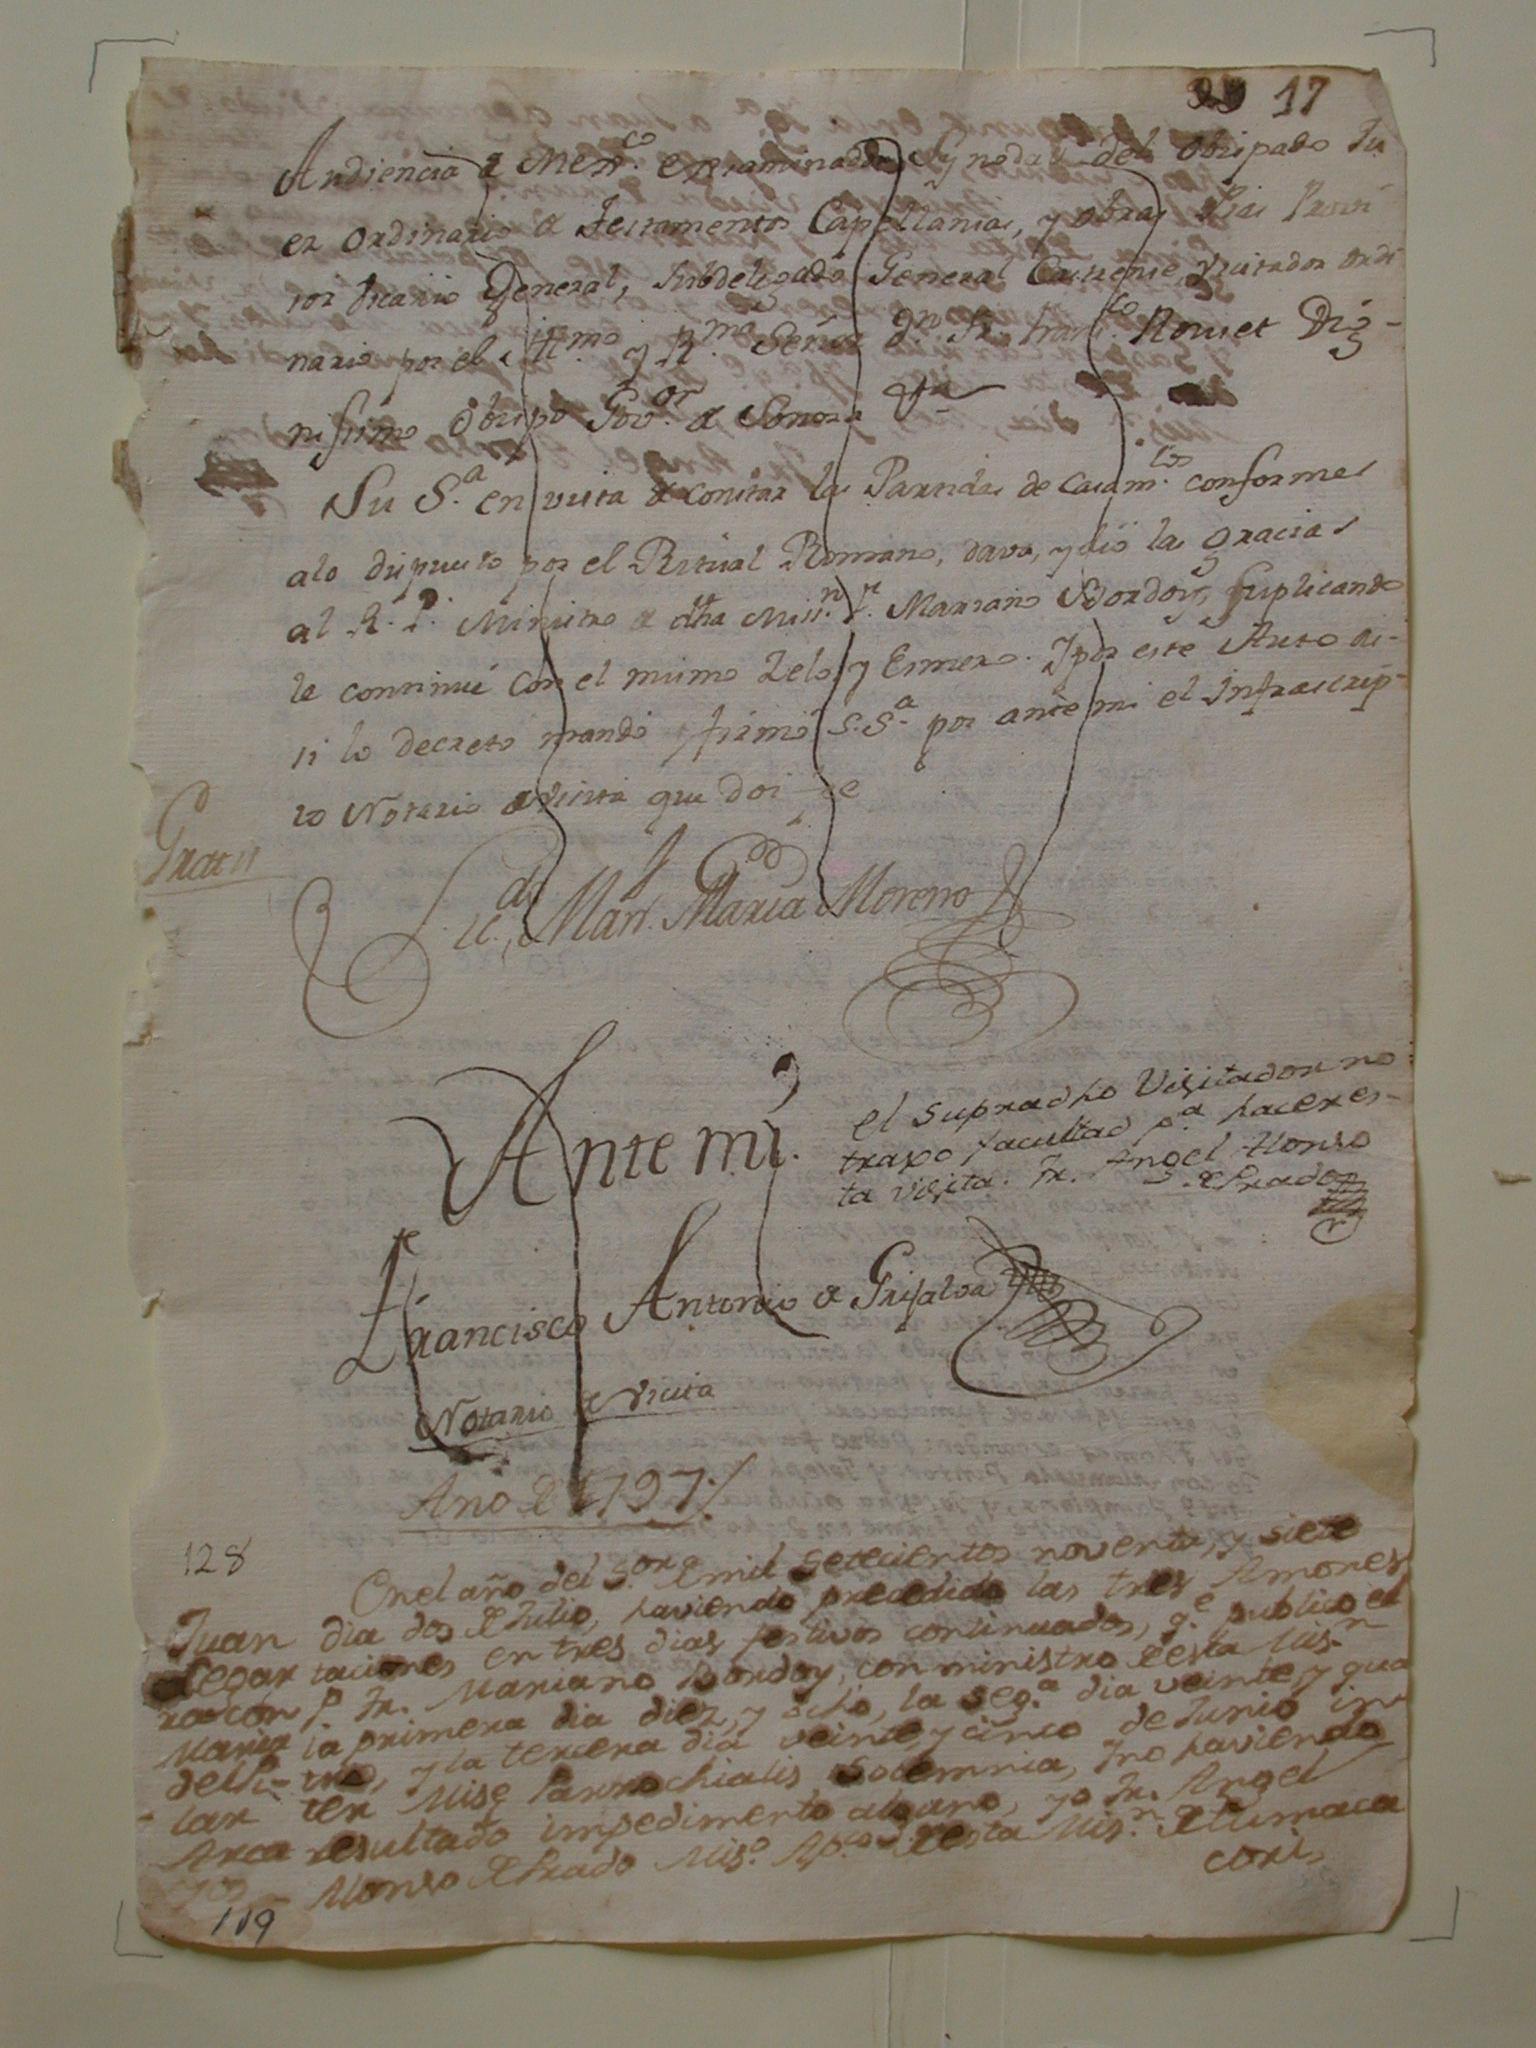 17
Audiencia de Mex.co examinador Synodal del Obispado Ju
ez ordinario de Testamentos Capellanias, y obras Pias Provi
sor Vicario General, Subdelegado General Castrense Vicitador ordi
nario por el Yll.mo y R.mo Señor D.n Fr. Fran.co Rouset Dig-
nisimo Obispo Gov.or de Sonora &a
Su S.a en vista de constar las Partidas de Casam.tos conformes
alo dispuesto por el Ritual Romano, dava, y dio las gracias
al R. P. Ministro de dha Miss.n Fr. Mariano Bordoy, suplicando
le continué con el mismo Zelo, y Esmero. Y por este Auto a-
si lo decreto mandó y firmó S.Sa. por ante mi el infrascrip-
to Notario de Visita que doi fee
Gratis
Lic.do Man.l Maria Moreno
Ante mi.
el Supradho Visitador no
traxo facultad p.a hacer es-
ta visita. Fr. Angel Alonso
de Prado
Francisco Antonio de Grijalva
Notario de Vicita
Año de 1797./
128
En el año del S.or de mil setecientos noventa, y siete
Juan dia dos de Julio, haviendo precedido las tres Amones
legar taciones en tres dias festivos continuados, q.e publico el
ra con P. Fr. Mariano Bordoy, con ministro de esta Mis.n
Maria la primera dia diez, y ocho, la seg.a dia veinte, y qua
tro, y la tercera dia veinte, y cinco de Junio in
lar ter Mise Parrochialis Solemnia, y no haviendo
Arca resultado impedimento alguno, yo Fr. Angel
Alonso de Prado Mis.o Ap.co de esta Mis.n de Tumaca
cori,
119